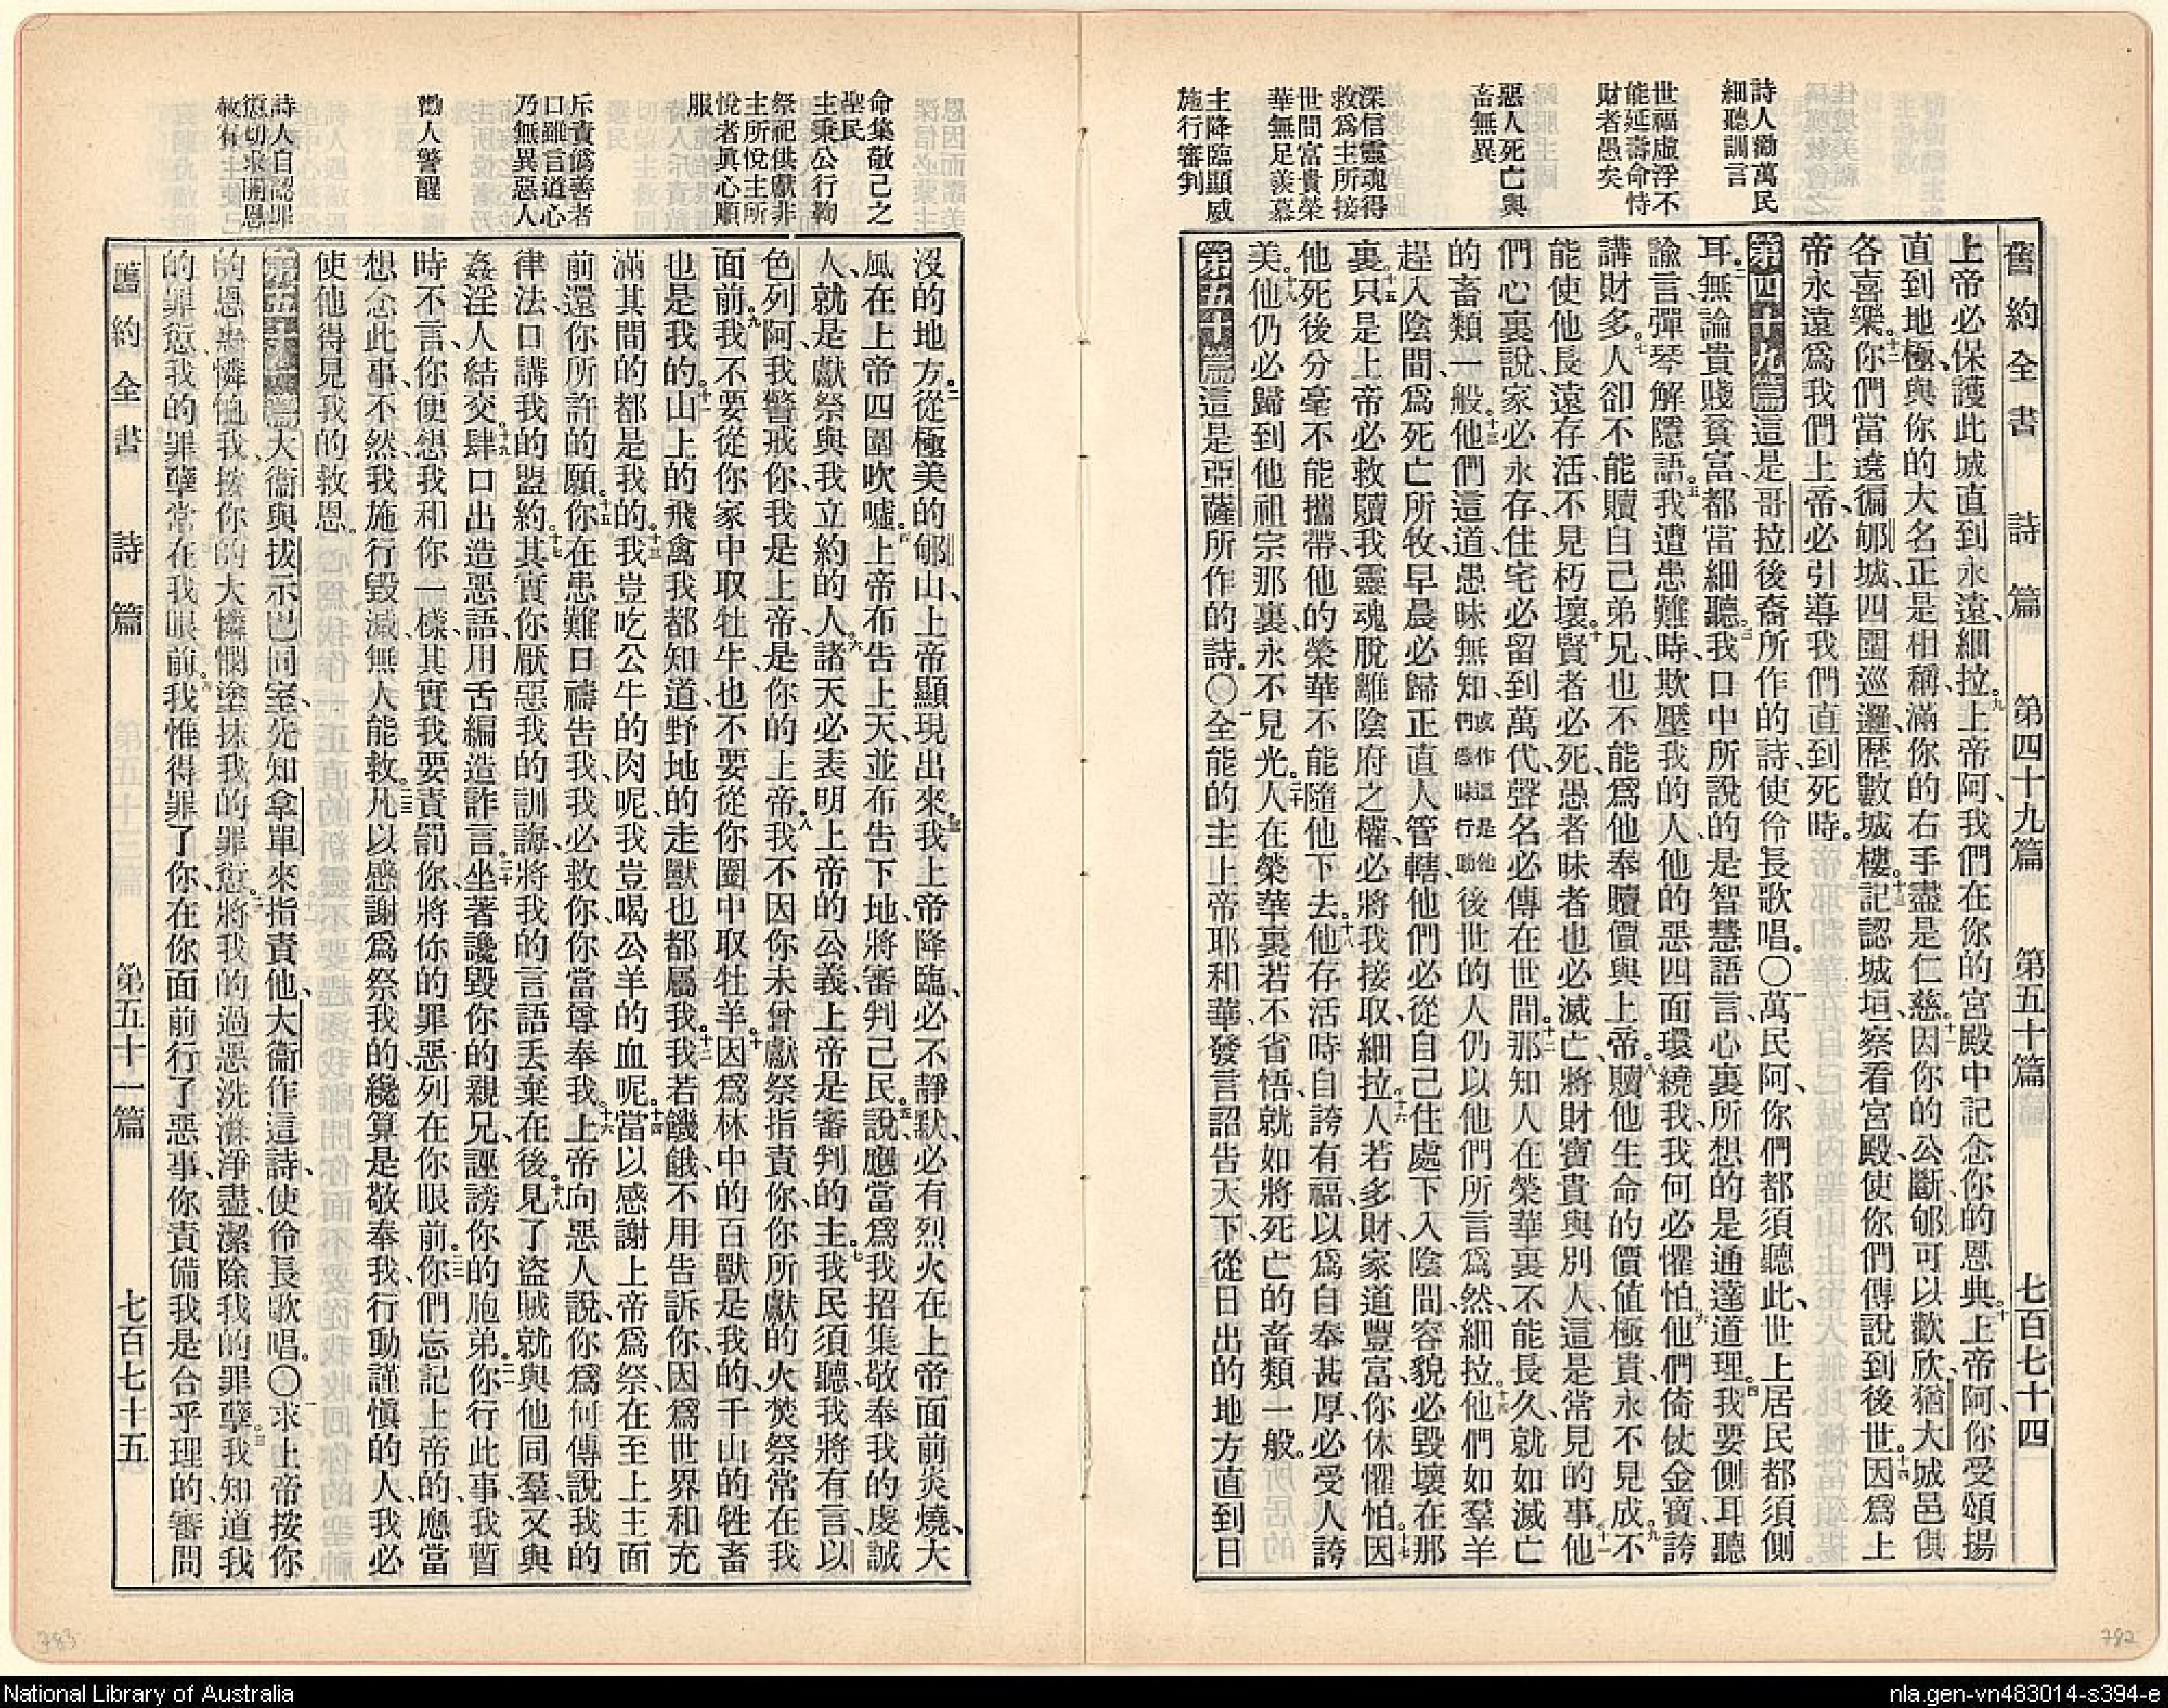 舊約全書　詩篇　第四十九篇　第五十篇　七百七十四
詩人勸萬民
細聽訓言
世福虛浮不
能延壽命恃
財者愚矣
惡人死亡與
畜無異
深信靈魂得
救爲主所接
世間富貴榮
華無足羨慕
主降臨顯威
施行審判
上帝必保護此城直到永遠、細拉。九上帝阿、我們在你的宮殿中記念你的恩典。十上帝阿、你受頌揚
直到地極、與你的大名正是相稱、滿你的右手盡是仁慈。十一因你的公斷、郇可以歡欣、猶大城邑俱
各喜樂。十二你們當遶徧郇城、四圍巡邏、歷數城樓。十三記認城垣、察看宮殿、使你們傳說到後世。十四因爲上
帝永遠爲我們上帝、必引導我們直到死時。
第四十九篇這是哥拉後裔所作的詩、使伶長歌唱。〇一萬民阿、你們都須聽此、世上居民都須側
耳。二無論貴賤貧富、都當細聽。三我口中所說的是智慧語言、心裏所想的是通達道理。四我要側耳聽
諭言、彈琴解隱語。五我遭患難時、欺壓我的人、他的惡四面環繞我、我何必懼怕。六他們倚仗金寶、誇
講財多。七人卻不能贖自己弟兄、也不能爲他奉贖價與上帝。八贖他生命的價値極貴、永不見成。九不
能使他長遠存活、不見朽壞。十賢者必死、愚者昧者也必滅亡、將財寶貴與別人、這是常見的事。十一他
們心裏說、家必永存、住宅必留到萬代、聲名必傳在世間。十二那知人在榮華裏不能長久、就如滅亡
的畜類一般。十三他們這道愚昧無知、或作這是他們愚昧行動、後世的人仍以他們所言爲然、細拉。十四他們如羣羊
趕入陰間、爲死亡所牧、早晨必歸正直人管轄、他們必從自己住處下入陰間、容貌必毀壞在那
裏。十五只是上帝必救贖我靈魂脫離陰府之權、必將我接取、細拉。十六人若多財、家道豐富、你休懼怕。十七因
他死後分毫不能攜帶、他的榮華不能隨他下去。十八他存活時自誇有福、以爲自奉甚厚、必受人誇
美。十九他仍必歸到他祖宗那裏、永不見光。二十人在榮華裏、若不省悟、就如將死亡的畜類一般。
第五十篇這是亞薩所作的詩。〇一全能的主上帝耶和華發言、詔告天下、從日出的地方直到日
命集敬己之
聖民
主秉公行鞫
祭祀供獻非
主所悅主所
悅者眞心順
服
斥責僞善者
口雖言道心
乃無異惡人
勸人警醒
詩人自認罪
愆切求開恩
赦宥
沒的地方。二從極美的郇山、上帝顯現出來。三我上帝降臨、必不靜默、必有烈火在上帝面前炎燒、大
風在上帝四圍吹噓。四上帝布告上天、並布告下地、將審判己民。五說、應當爲我招集敬奉我的虔誠
人、就是獻祭與我立約的人。六諸天必表明上帝的公義、上帝是審判的主。七我民須聽、我將有言、以
色列阿、我警戒你、我是上帝、是你的上帝。八我不因你未曾獻祭指責你、你所獻的火焚祭常在我
面前。九我不要從你家中取牡牛、也不要從你圈中取牡羊。十因爲林中的百獸是我的、千山的牲畜
也是我的。十一山上的飛禽我都知道、野地的走獸也都屬我。十二我若饑餓、不用告訴你、因爲世界和充
滿其間的都是我的。十三我豈吃公牛的肉呢、我豈喝公羊的血呢。十四當以感謝上帝爲祭、在至上主面
前還你所許的願。十五你在患難日禱告我、我必救你、你當尊奉我。十六上帝向惡人說、你爲何傳說我的
律法、口講我的盟約。十七其實你厭惡我的訓誨、將我的言語丟棄在後。十八見了盜賊、就與他同羣、又與
姦淫人結交。十九肆口出造惡語、用舌編造詐言。二十坐著讒毀你的親兄、誣謗你的胞弟。二一你行此事、我暫
時不言、你便想我和你一樣、其實我要責罰你、將你的罪惡列在你眼前。二二你們忘記上帝的、應當
想念此事、不然我施行毀滅、無人能救。二三凡以感謝爲祭我的、纔算是敬奉我、行動謹愼的人、我必
使他得見我的救恩。
第五十一篇大衞與拔示巴同室、先知拿單來指責他、大衞作這詩、使伶長歌唱。〇一求上帝按你
的恩典憐恤我、按你的大憐憫塗抹我的罪愆。二將我的過惡洗滌淨盡、潔除我的罪孽。三我知道我
的罪愆、我的罪孽常在我眼前。四我惟得罪了你、在你面前行了惡事、你責備我是合乎理的、審問
舊約全書　詩篇　第五十一篇　七百七十五
783
782
National Library of Australia
nla.gen-vn483014-s394-e